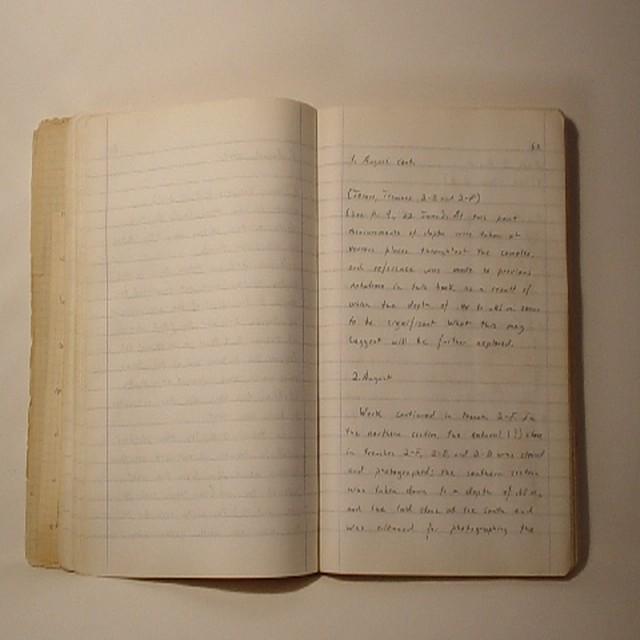 62
1. August cont.
(Tesoro, Trenches 2-E and 2-F)
(See p. 9, 22 June). At this point
measurements of depths were taken at
various places throughout the complex,
and reference was made to previous
notations in this book as a result of
which the depth of seems
to be significant. What this may
suggest will be further explored.
2. August
Work continued in trench 2-F. In
the northern section the external (?)
in trenches 2-F, 2-E and 2-D was
and photographed; the southern section
was taken down to a depth of
and the at the south end
was cleaned for photographing the